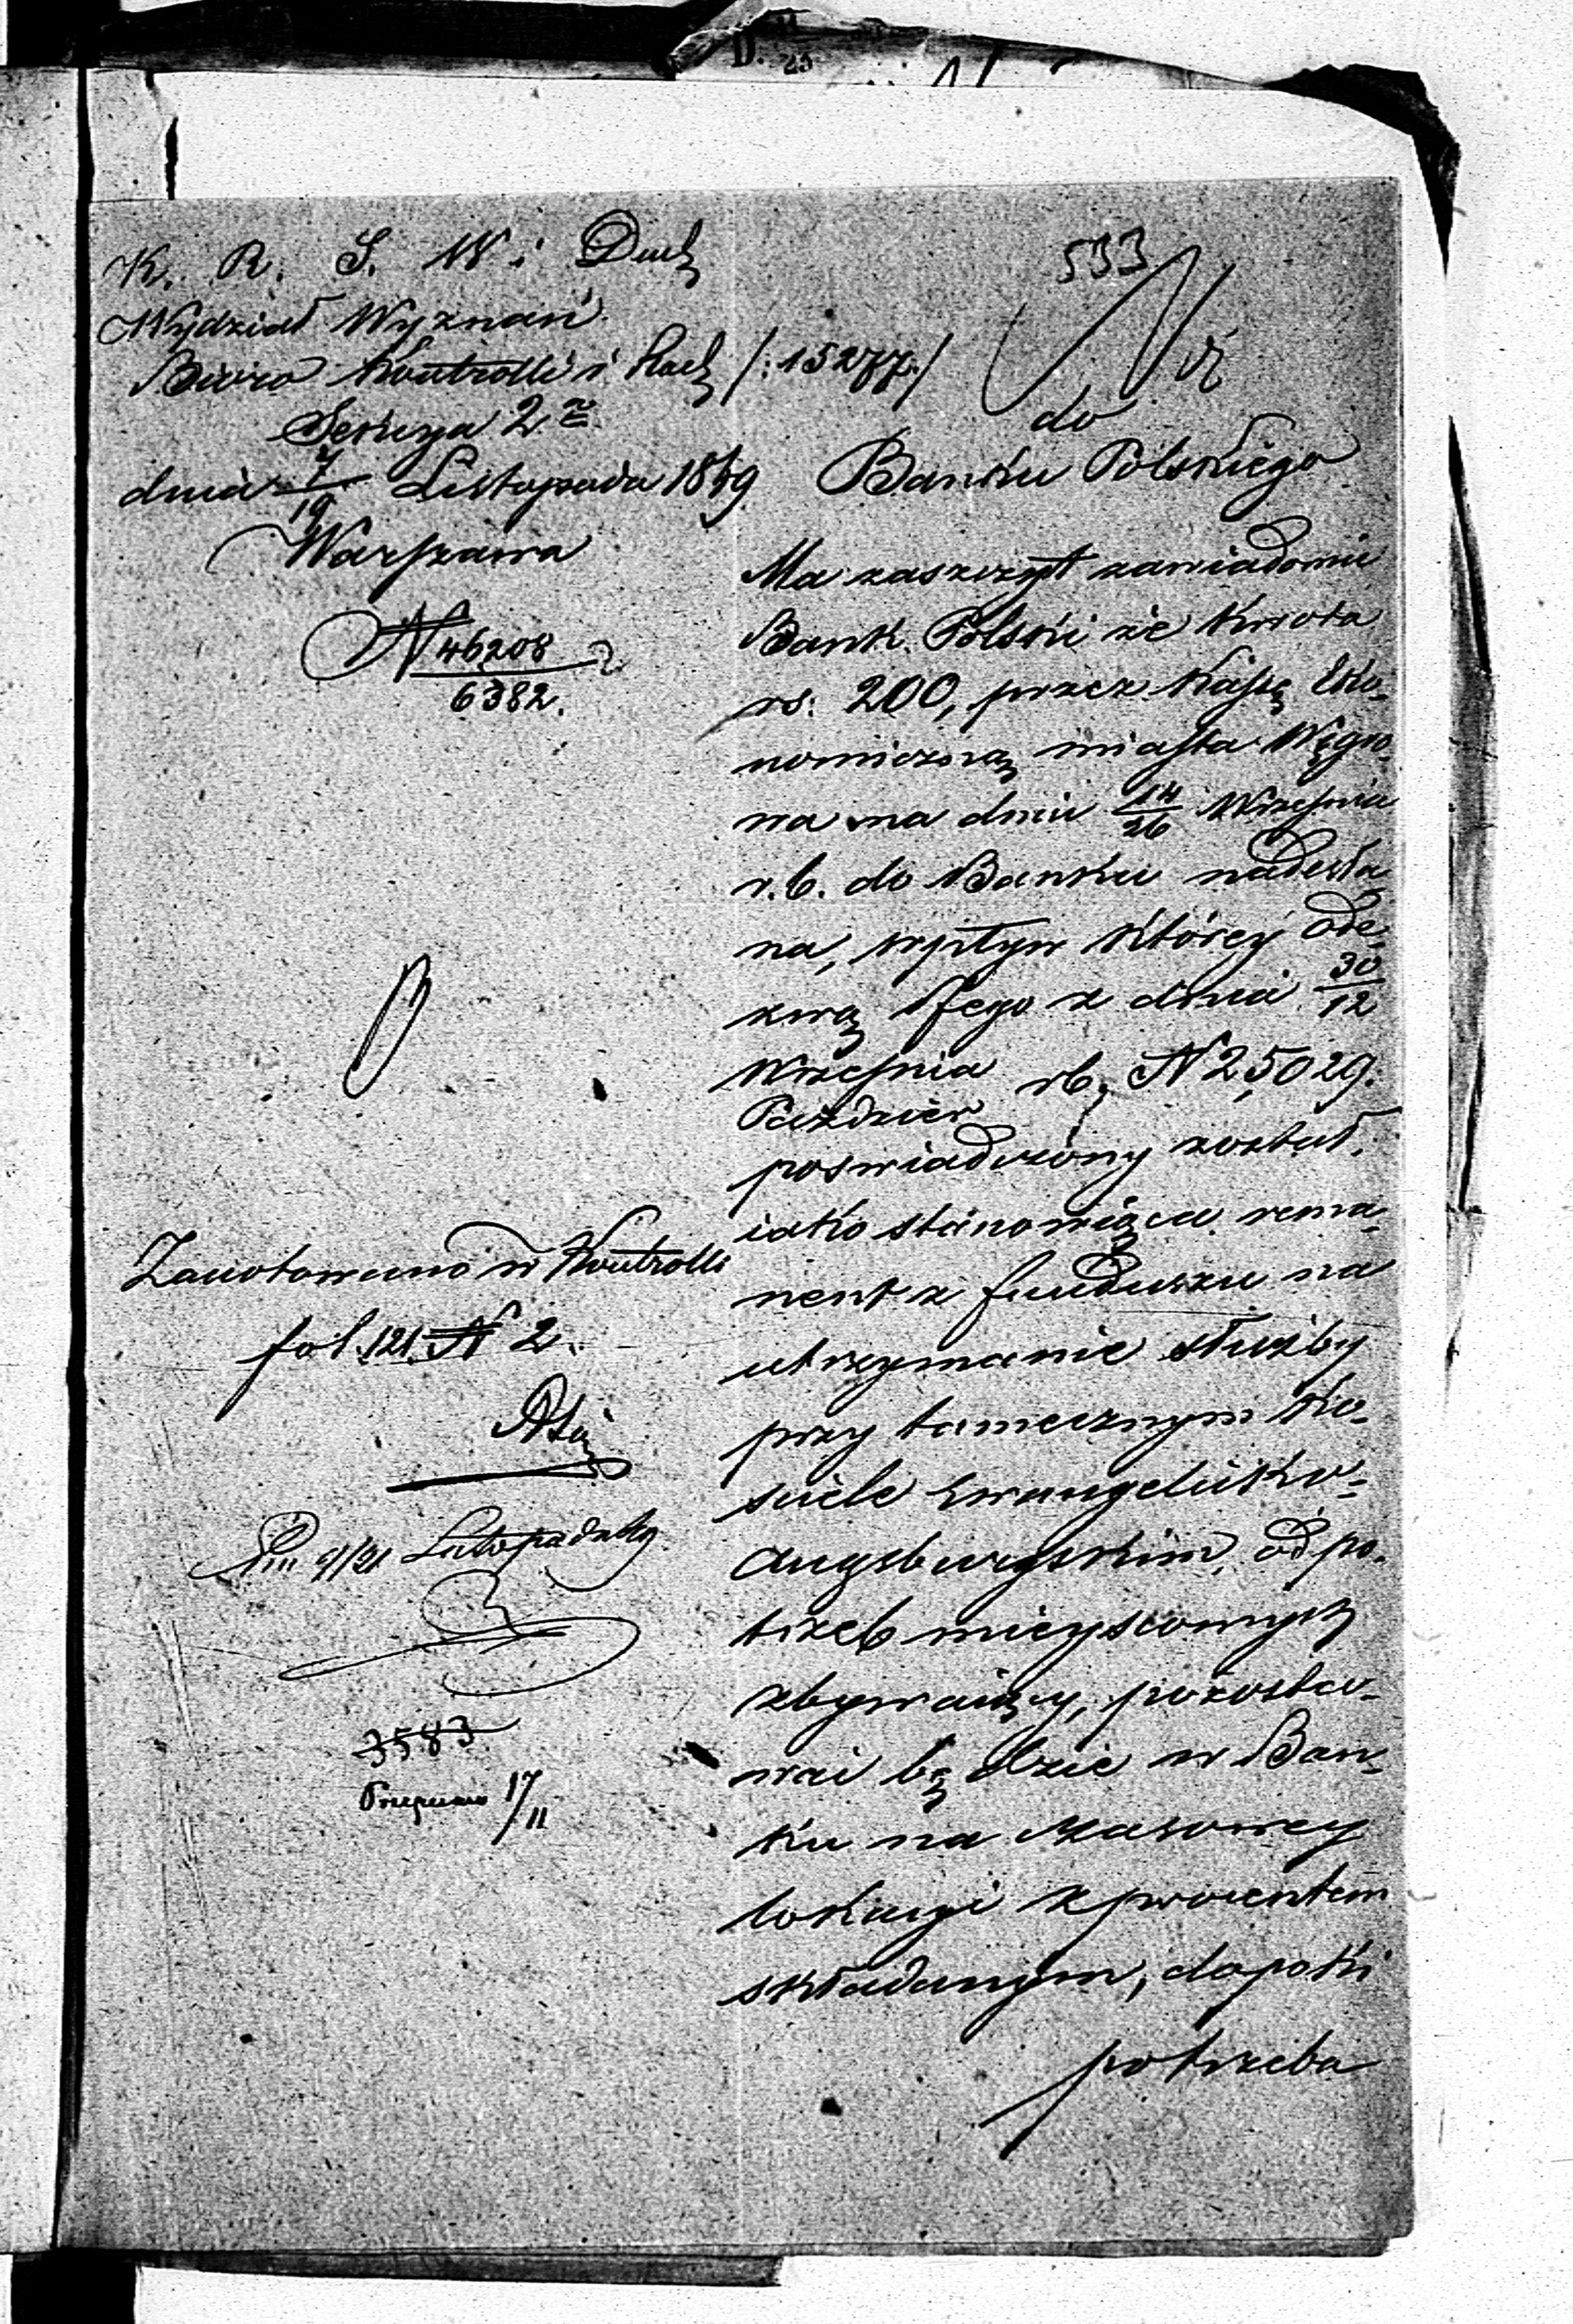 533
K. R. S. W. i Duch
Wydział Wyznań
Biuro Kontrolli i Rach /: 15277 :/
Sekcya 2a
dnia 7/19 Listopada 1849
Warszawa
N 46208/6382.
do
Banku Polskiego
Ma zaszczyt zawiadomić
Bank Polski że kwota
rs. 200, przez Kassę Eko-
nomiczną miasta Węgro-
wa na dniu 14/26 Września
r.b. do Banku nadesła-
na, wpływ którey ode-
zwą Jego z dnia 30/12
Września/Paździer rb. N 25,029.
poswiadczony został,
iako stanowiąca rema-
nent z funduszu na
utrzymanie służby
przy tamecznym Ko-
sciele Ewangelicko-
Augsburgskim, od po-
trzeb mieyscowych
zbywaiący, pozosta-
wać będzie w Ban-
ku na czasowey
lokacyi z procentem
składanym, dopóki
potrzeba
Zanotowano w Kontrolli
fol. 121 N 2.
9/21 Listopada 49
3583
17/11